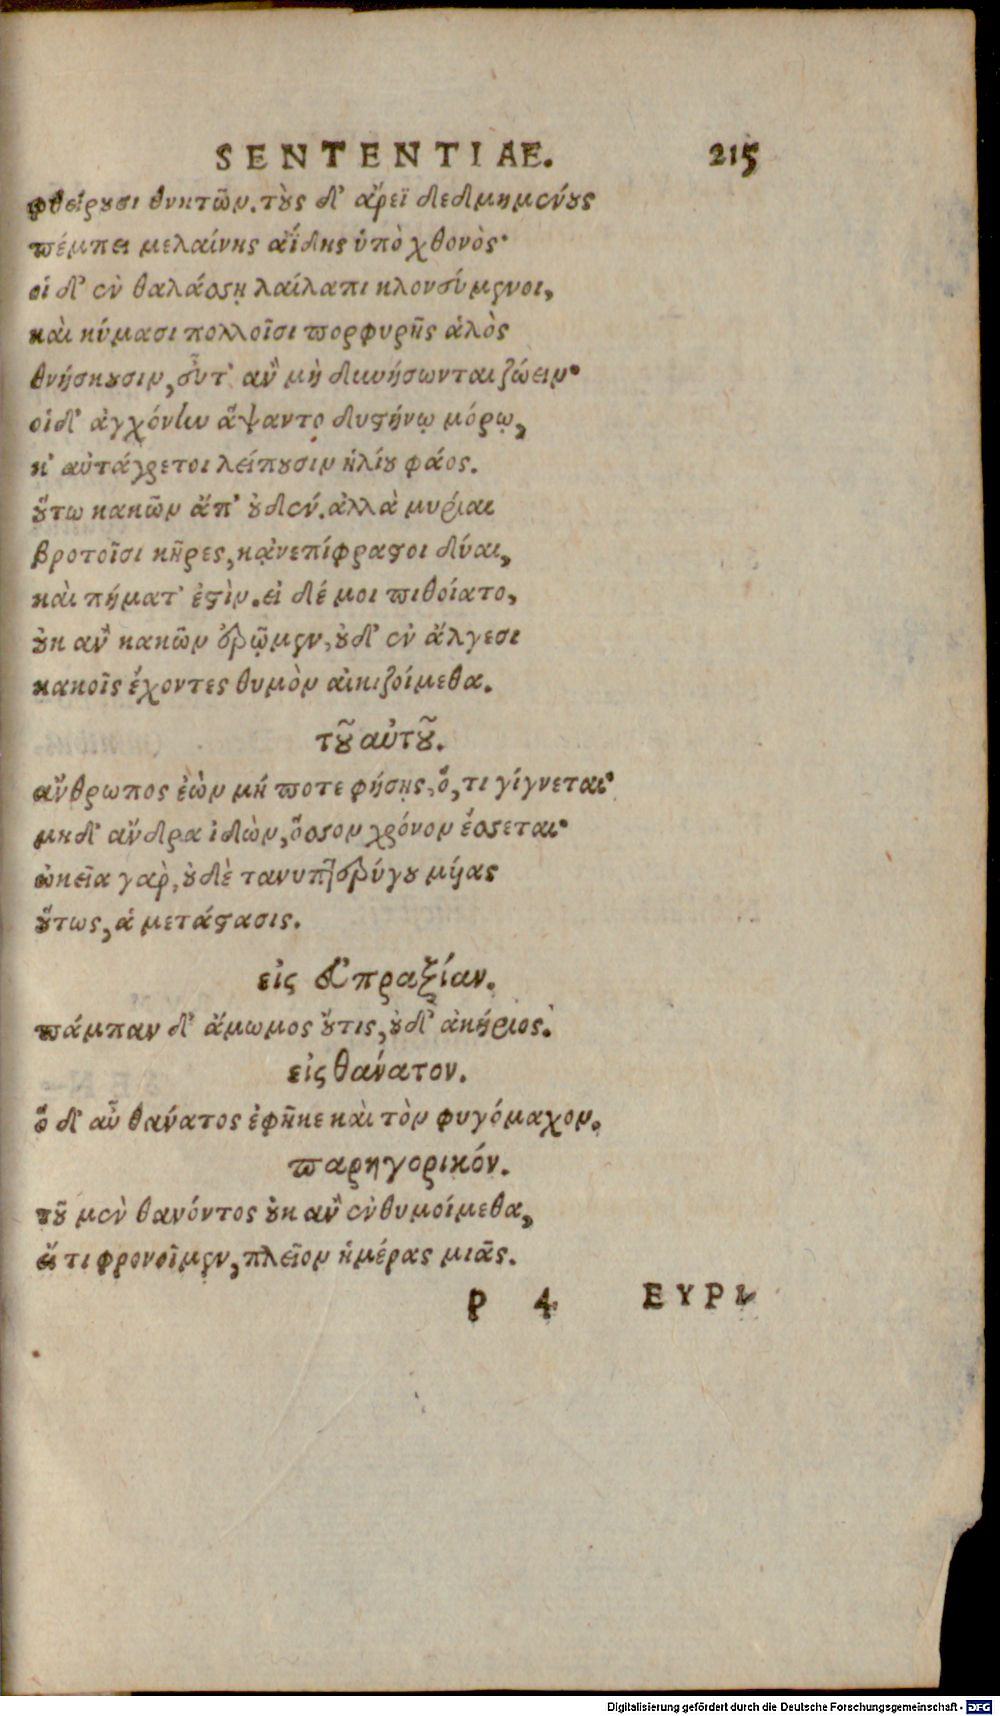 SENTENTIAE. 215
φθείρουσι θνητῶν. τοὺς δ' ἄρεϊ δεδμημένους
πέμπει μελαίνης ἀΐδης ὑπὸ χθονός·
οἱ δ' ἐν θαλάσσῃ λαίλαπι κλονεύμενοι,
καὶ κύμασι πολλοῖσι πορφυρῆς ἁλὸς
θνήσκουσιν, εὖτ' ἂν μὴ δυνήσωνται ζώειν·
οἱ δ' ἀγχόνην ἅψαντο δυστήνῳ μόρῳ,
κ' αὐτάγρετοι λείπουσιν ἡλίου φάος.
οὕτω κακῶν ἄπ' οὐδέν. ἀλλὰ μυρίαι
βροτοῖσι κῆρες, κᾀνεπίφραστοι δύαι,
καὶ πήματ' ἐστὶν. εἰ δέ μοι πιθοίατο,
οὐκ ἂν κακῶν ἐρῷμεν, οὐδ' ἐν ἄλγεσι
κακοῖς ἔχοντες θυμὸν αἰκιζοίμεθα.
τοῦ αὐτοῦ.
ἄνθρωπος ἐὼν μή ποτε φήσῃς, ὅ, τι γίγνεται·
μηδ' ἄνδρα ἰδὼν, ὅσσον χρόνον ἔσσεται·
ὠκεῖα γὰρ, οὐδὲ τανυπτερύγου μύιας
οὕτως, ἁ μετάστασις.
εἰς εὐπραξίαν.
πάμπαν δ' ἄμωμος οὔτις, οὐδ' ἀκήριος.
εἰς θάνατον.
ὅ δ' αὖ θάνατος ἐφῆκε καὶ τὸν φυγόμαχον.
παρηγορικόν.
τοῦ μὲν θανόντος οὐκ ἂν ἐνθυμοίμεθα,
εἴ τι φρονοῖμεν, πλεῖον ἡμέρας μιᾶς.
P 4 EYPI-
Digitalisierung gefördert durch die Deutsche Forschungsgemeinschaft - DFG